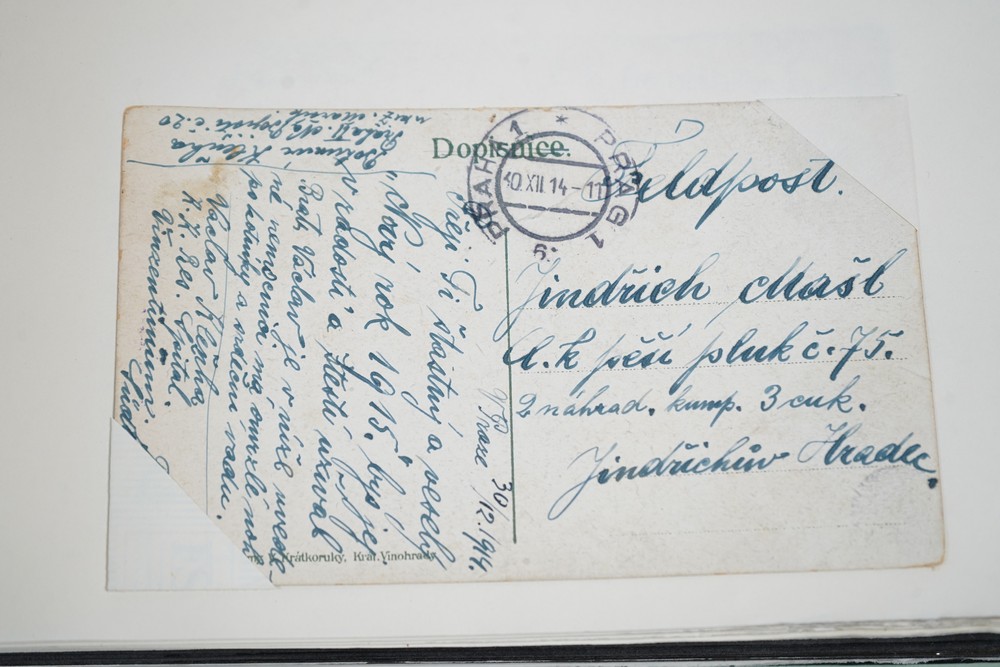 Dopisnice.
PRAHA 1 * PRAG 1
30.XII.14-11
9:
Feldpost.
Jindřich Mašl
C. k pěší pluk č. 75.
2 náhrad. kump. 3 cuk.
Jindřichův Hradec.
V Praze 30/12.1914.
Přeji Ti šťastný a veselý
Nový rok 1915. bys jej
v radosti a štěstí užíval
Brat Václav je v níže uvede-
né nemocnici má omrzlé nohy
Václav Klečka
K. K. Res. Spital
Praha II. Na Poříčí č. 20
V. Krátkoruky, Král. Vinohrady